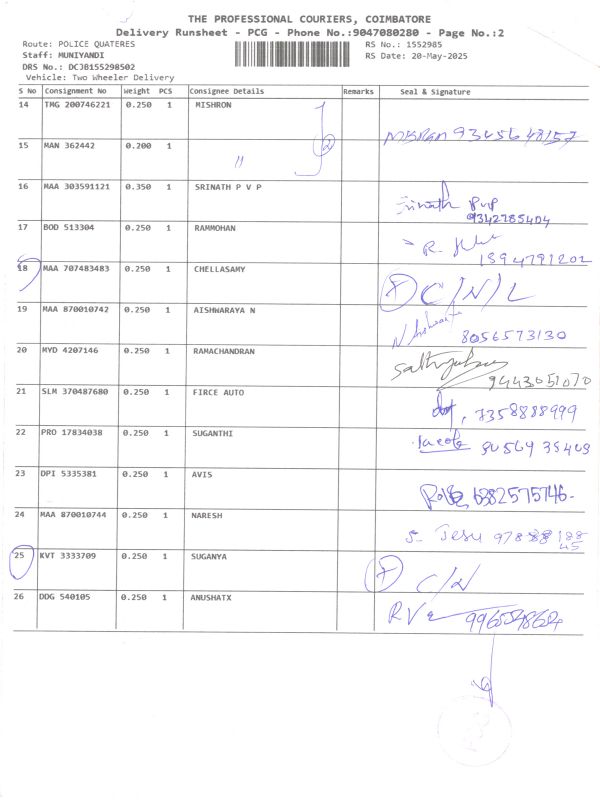 THE PROFESSIONAL COURIERS, COIMBATORE
Delivery Runsheet - PCG - Phone No.:9047080280 - Page No.:2
Route: POLICE QUATERES
RS No.: 1552985
Staff: MUNIYANDI
RS Date: 20-May-2025
DRS No.: DCJB155298502
Vehicle: Two Wheeler Delivery
S No Consignment No Weight PCS Consignee Details Remarks Seal & Signature
14 TMG 200746221 0.250 1 MISHRON
9345648157
15 MAN 362442 0.200 1 "
16 MAA 303591121 0.350 1 SRINATH P V P
Srinath pvp
9342785404
17 BOD 513304 0.250 1 RAMMOHAN
R.
18 MAA 707483483 0.250 1 CHELLASAMY
C/N/L
19 MAA 870010742 0.250 1 AISHWARAYA N
8056573130
20 MYD 4207146 0.250 1 RAMACHANDRAN
9443651070
21 SLM 370487680 0.250 1 FIRCE AUTO
7358888999
22 PRO 17834038 0.250 1 SUGANTHI
23 DPI 5335381 0.250 1 AVIS
6382575746
24 MAA 870010744 0.250 1 NARESH
25 KVT 3333709 0.250 1 SUGANYA
C/N
26 DDG 540105 0.250 1 ANUSHATX